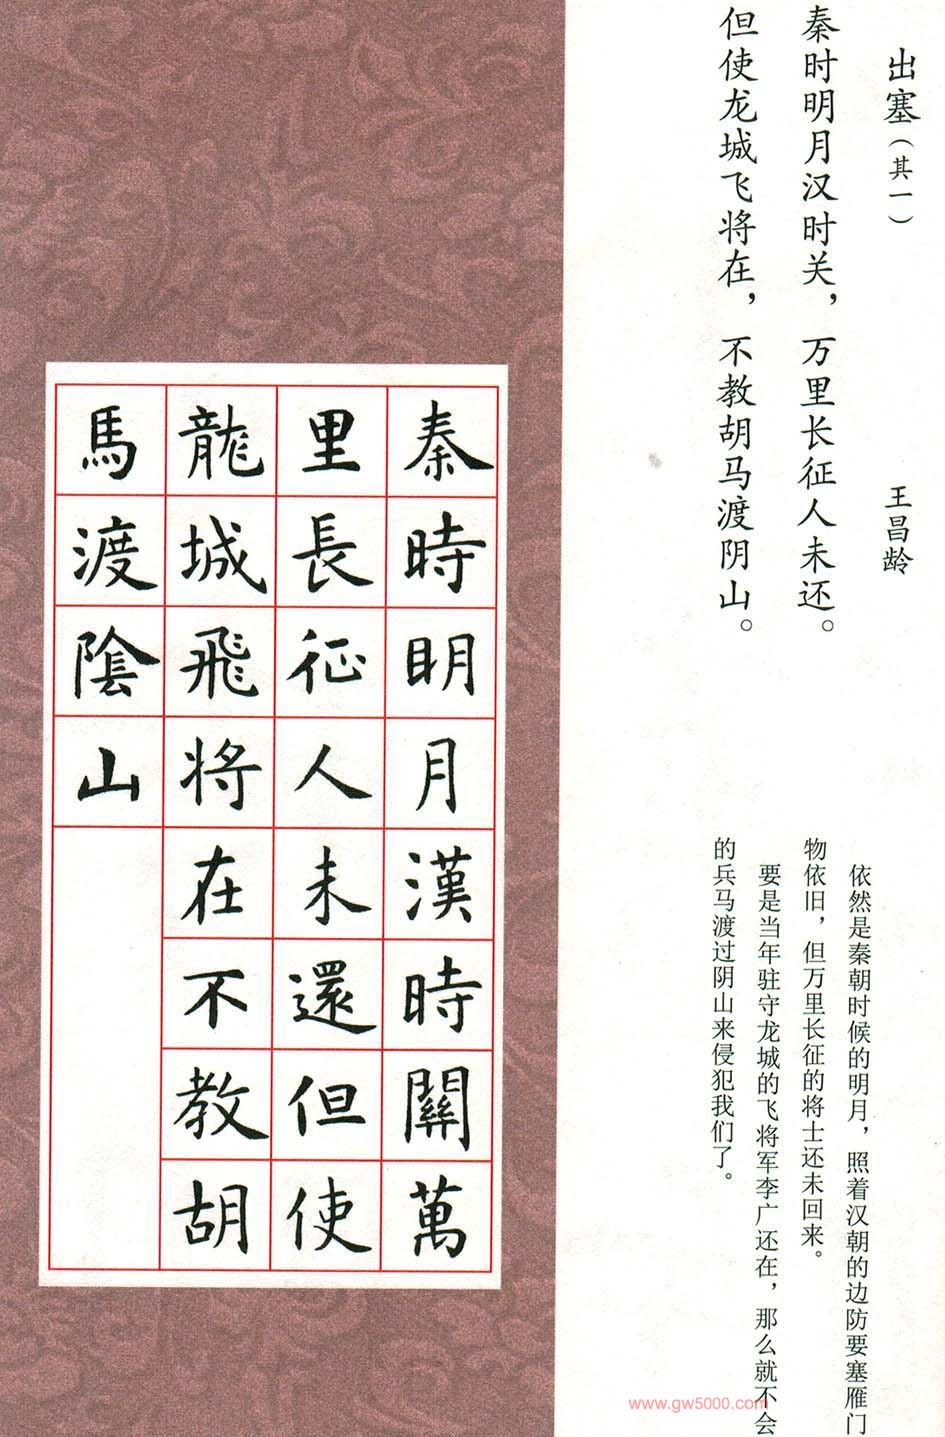 出塞（其一）
王昌龄
秦时明月汉时关，万里长征人未还。
但使龙城飞将在，不教胡马渡阴山。
依然是秦朝时候的明月，照着汉朝的边防要塞雁门
物依旧，但万里长征的将士还未回来。
要是当年驻守龙城的飞将军李广还在，那么就不会
的兵马渡过阴山来侵犯我们了。
秦時明月漢時關萬
里長征人未還但使
龍城飛将在不教胡
馬渡陰山
www.gw5000.com